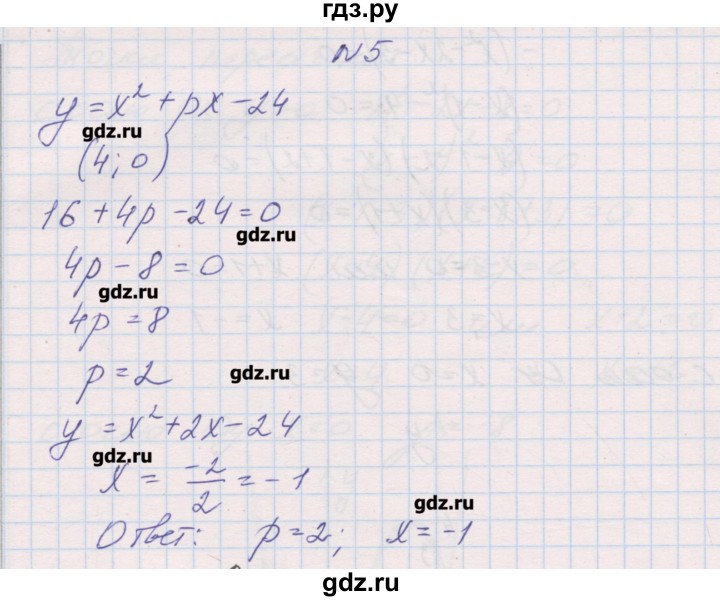 гдз.ру
N5
y = x² + px − 24
gdz.ru
(4; 0)
16 + 4p − 24 = 0
gdz.ru
4p − 8 = 0
gdz.ru
4p = 8
p = 2
gdz.ru
y = x² + 2x − 24
gdz.ru
x = -2/2 = −1
gdz.ru
Ответ: p = 2; x = −1
gdz.ru